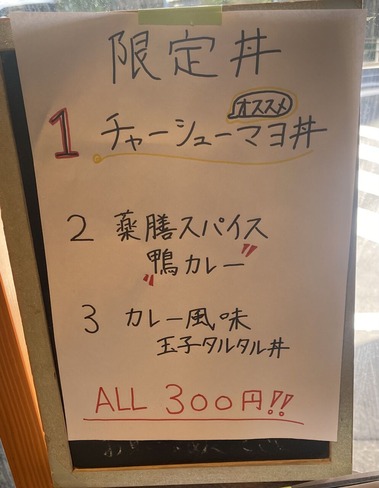 限定丼
オススメ
1 チャーシューマヨ丼
2 薬膳スパイス
"鴨カレー"
3 カレー風味
玉子タルタル丼
ALL 300円!!